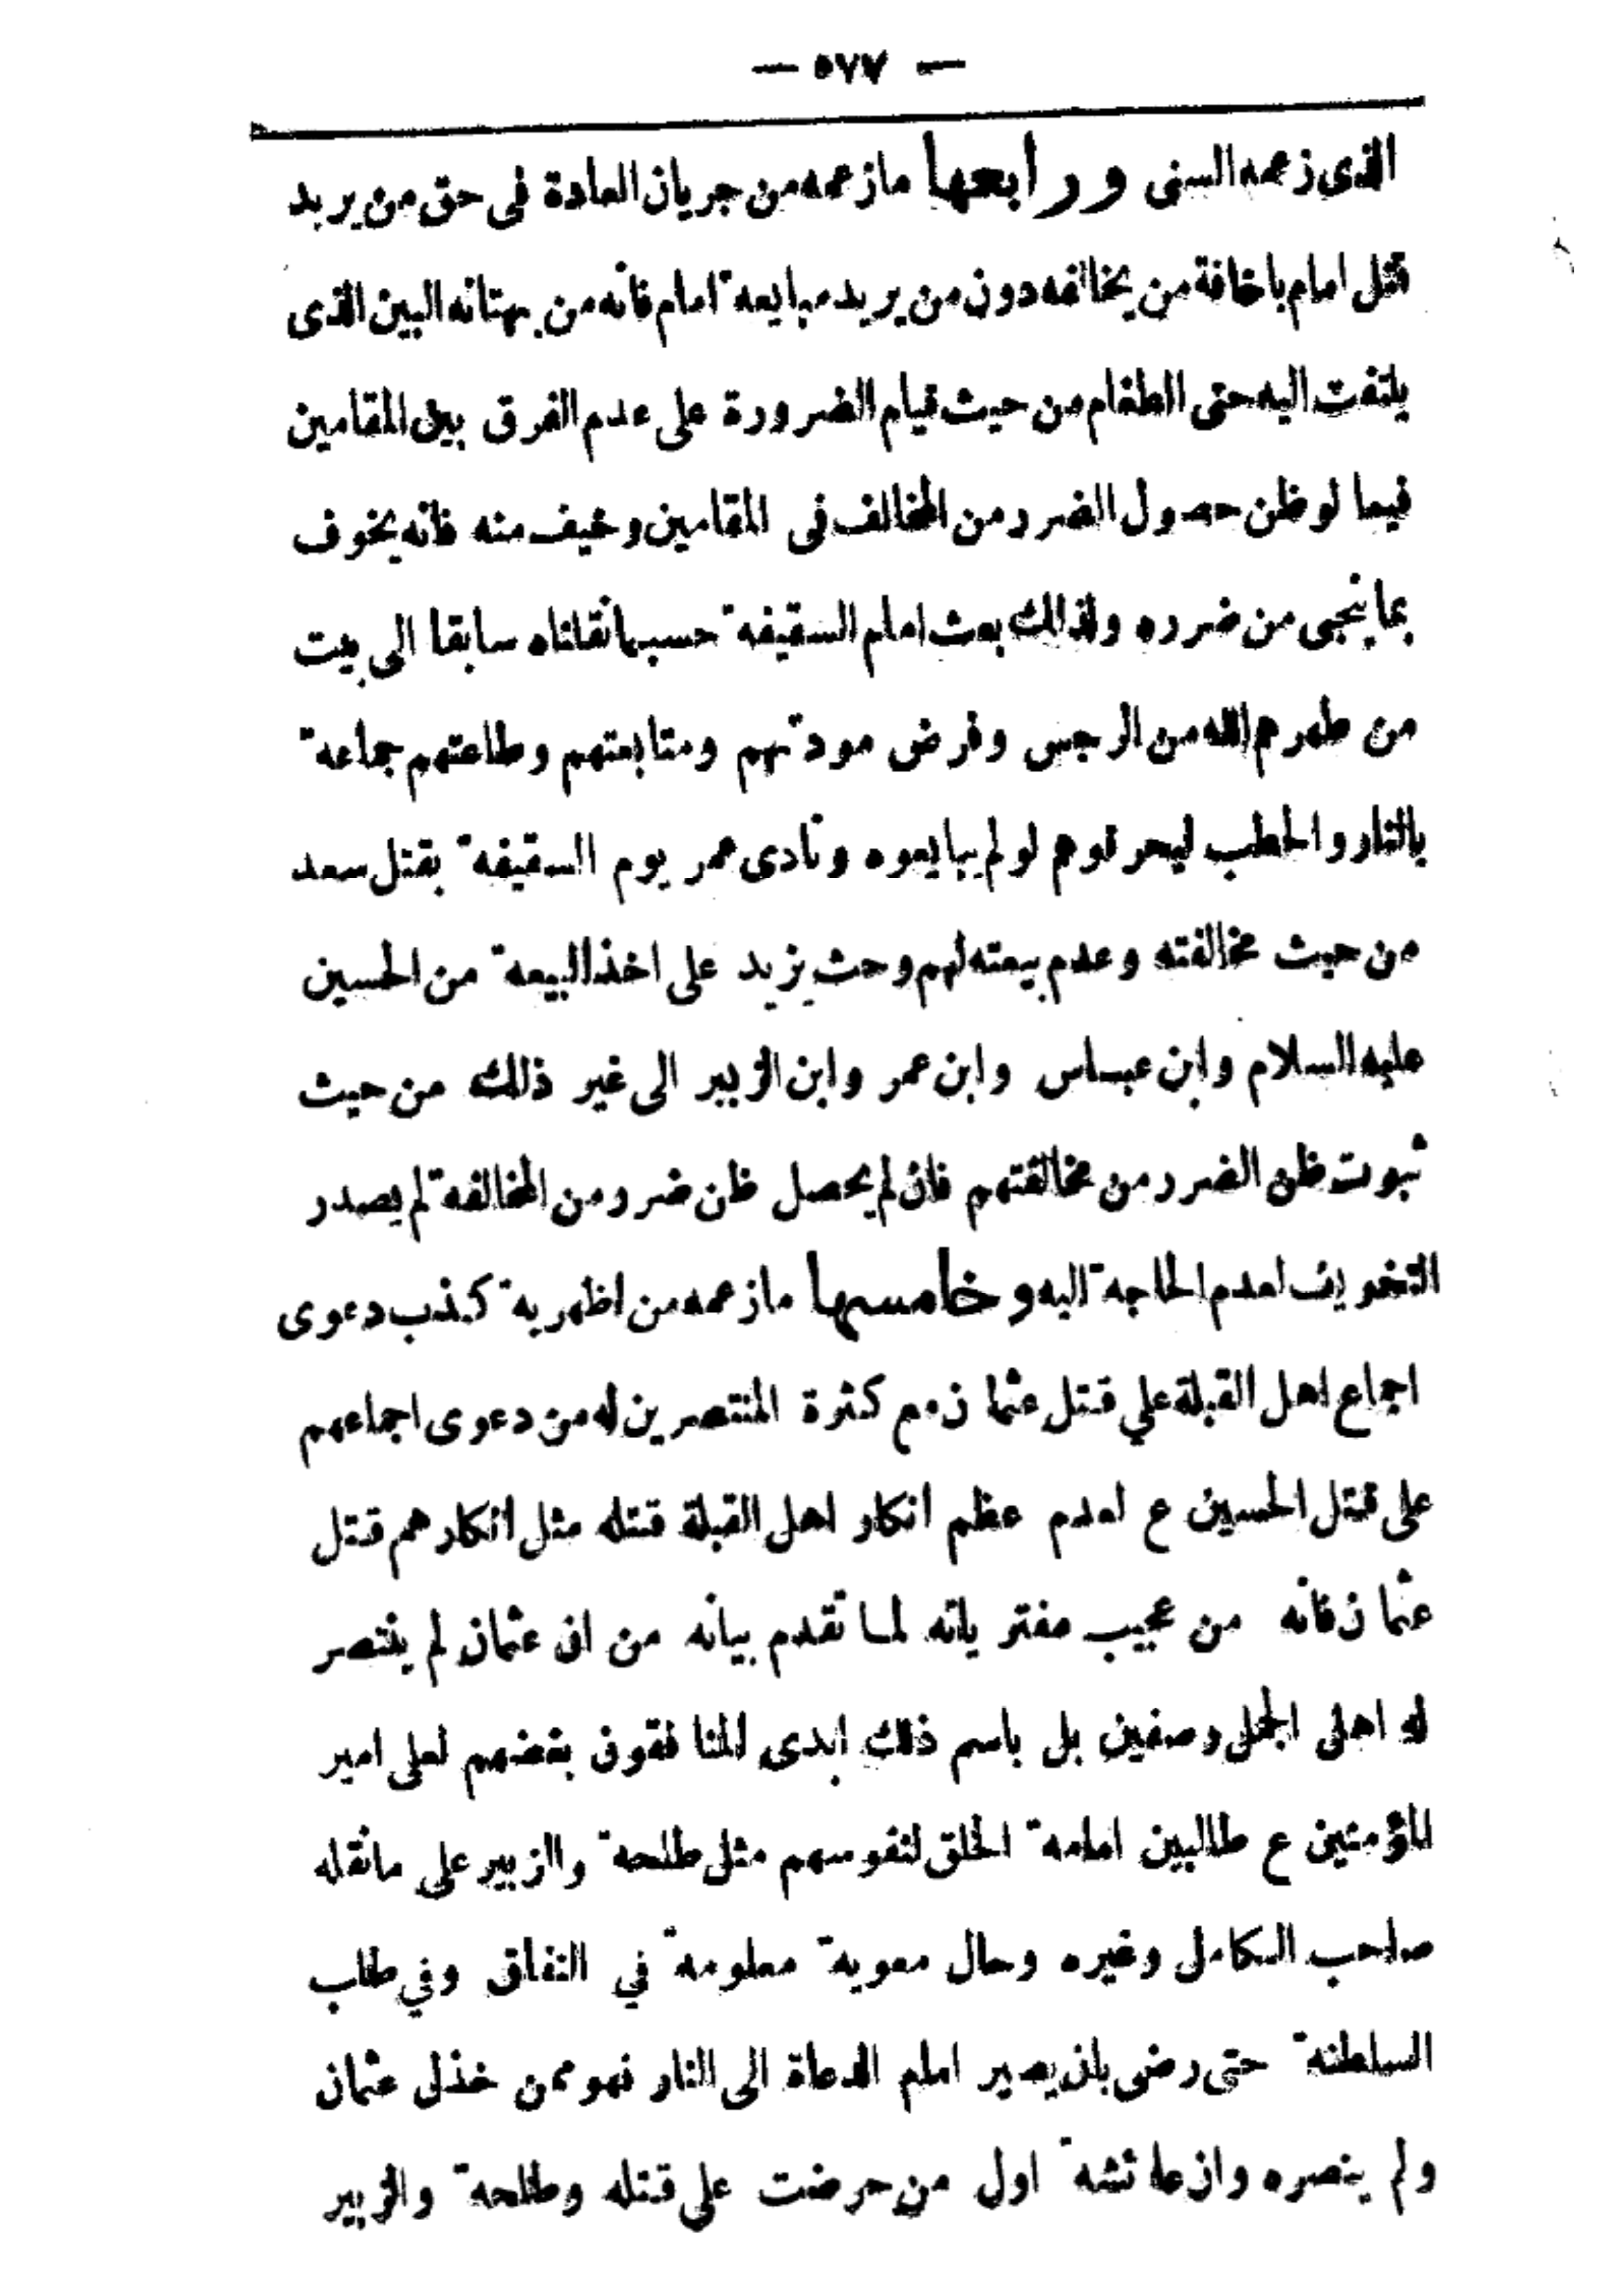 — ٥٧٧ —
الذى زعمه السنى ورابعها مازعمه من جريان العادة فى حق من يريد
قتل امام باخافة من يخالفه دون من يريد مبايعة امام فانه من بهتانه البين الذى
يلتفت اليه حتى الطغام من حيث قيام الضرورة على عدم الفرق بين المقامين
فيما لو ظن حصول الضرر من المخالف فى المقامين وخيف منه فانه يخوف
بما ينجى من ضرره ولذلك بعث امام السقيفة حسبما نقلناه سابقا الى بيت
من طهرهم الله من الرجس وفرض مودتهم ومتابعتهم وطاعتهم جماعة
بالنار والحطب ليحرقوهم لو لم يبايعوه ونادى عمر يوم السقيفة بقتل سعد
من حيث مخالفته وعدم بيعته لهم وحث يزيد على اخذ البيعة من الحسين
عليه السلام وابن عباس وابن عمر وابن الزبير الى غير ذلك من حيث
ثبوت ظن الضرر من مخالفتهم فان لم يحصل ظن ضرر من المخالفة لم يصدر
التخويف لعدم الحاجة اليه وخامسها مازعمه من اظهرية كذب دعوى
اجماع اهل القبلة علي قتل عثمان مع كثرة المنتصرين له من دعوى اجماعهم
على قتل الحسين ع لعدم عظم انكار اهل القبلة قتله مثل انكارهم قتل
عثمان فانه من عجيب مفترياته لما تقدم بيانه من ان عثمان لم ينتصر
له اهلى الجمل وصفين بل باسم ذلك ابدى المنافقون بغضهم لعلى امير
المؤمنين ع طالبين امامة الخلق لنفوسهم مثل طلحة والزبير علي مانقله
صاحب الكامل وغيره وحال معوية معلومة في النفاق وفي طلب
السلطنة حتى رضى بان يصير امام الدعاة الى النار فهو ممن خذل عثمان
ولم ينصره وان عائشة اول من حرضت على قتله وطلحة والزبير